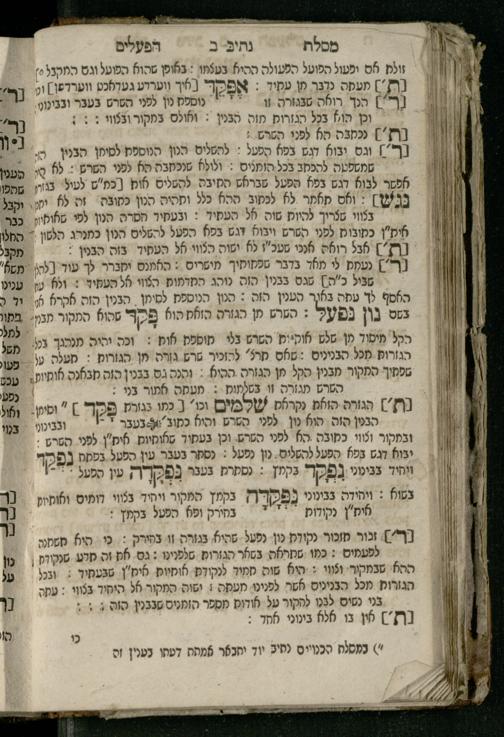 מסלת נתיב ב הפעלים
זולת אם יפעול הפועל הפעולה ההיא בעצמו : באופן שהוא הפועל וגם המקבל
[ת׳] מעתה נדבר מן עתיד : אֶפָּקֵד [איך ווערדע געדאכט ווערדשן]
[ר׳] הנך רואה שבגזרה זו נוספת נון לפני השרש בעבר ובבינוני
וכן הוא בכל הגזרות מזה הבנין : ואולם במקור ובצווי :
[ת׳] נכתבה הא לפני השרש :
[ר׳] וגם יבוא דגש בפא הפעל : להשלים הנון הנוספת לסימן הבנין
שמשפטה להכתב בכל הזמנים : ולולא שנכתבה הא לפני השרש : לא
אפשר לבוא דגש בפא הפעל שבראש התיבה להשלים אות [כמ״ש לעיל בגזרת
נגש] : ואם תאמר לא לכתוב ההא כלל ותהיה הנון כתובה זה לא
בצווי שצריך להיות שוה אל העתיד : ובעתיד חסרה הנון לפי שאותיות
אית״ן כתובות לפני השרש ויבוא דגש בפא הפעל להשלים הנון כמנהג הלשון
[ת׳] אבל רואה אנכי שעכ״ז לא ישוה הצווי אל העתיד בזה הבנין :
[ר׳] נעמת לי מאד בדבר שפתותיך מישרים : האמנם יתברר לך עוד
שביל כ״ה] שגם בבנין זה נוהג התדמות הצווי אל העתיד : ולא
האסף לך עתה באור הענין הזה : הנון הנוספת לסימן הבנין הזה אקרא
בשם נון נפעל : השרש מן הגזרה הזאת הוא פָּקֹד שהוא המקור מבנין
הקל מיוסד מן שלש אותיות השרש בלי תוספת אות : וכה יהיה מנהגך בכל
הגזרות מכל הבנינים : שאם תרצ׳ להזכיר שרש גזרה מן הגזרות : תעלה על
שפתיך המקור מבנין הקל מן הגזרה ההיא : והנה גם בבנין הזה תבאנה אותיות
השרש מגזרה זו בשלמות : מעתה אמור בני :
[ת׳] הגזרה הזאת נקראת שלמים וכו׳ [כמו בגזרת פָּקַד] *) וסימן
הבנין הזה הוא נון לפני השרש והיא כתוב׳ בעבר ובבינוני
ובמקור וצווי כתובה הא לפני השרש וכן בעתיד שאותיות אית״ן לפני השרש :
יבוא דגש בפא הפעל להשלים נון נפעל : נסתר בעבר עין הפעל בפתח נִפְקַד
ויחיד בבינוני נִפְקָד בקמץ : נסתרת בעבר נִפְקְדָה עין הפעל
בשוא : ויחידה בבינוני נִפְקָדָה בקמץ המקור ויחיד בצווי דומים ואותיות
אית״ן נקודות בחירק ופא הפעל בקמץ :
[ר׳] זכור תזכור נקודת נון נפעל שהיא בגזרה זו בחירק : כי היא תשתנה
לפעמים : כמו שתראה בשאר הגזרות שלפנינו : גם את זה תדע שנקודת
ההא שבמקור וצווי : היא שוה תמיד לנקודת אותיות אית״ן שבעתיד : ובכל
הגזרות מכל הבנינים אשר לפנינו מעתה : ישוה המקור אל היחיד בצווי : עתה
בני נשים לבנו לחקור על אודות מספר הזמנים שבבנין הזה :
[ת׳] אין בו אלא בינוני אחד :
כי
*) במסלת הבנויים נתיב יוד יתבאר אמתת דעתו בענין זה